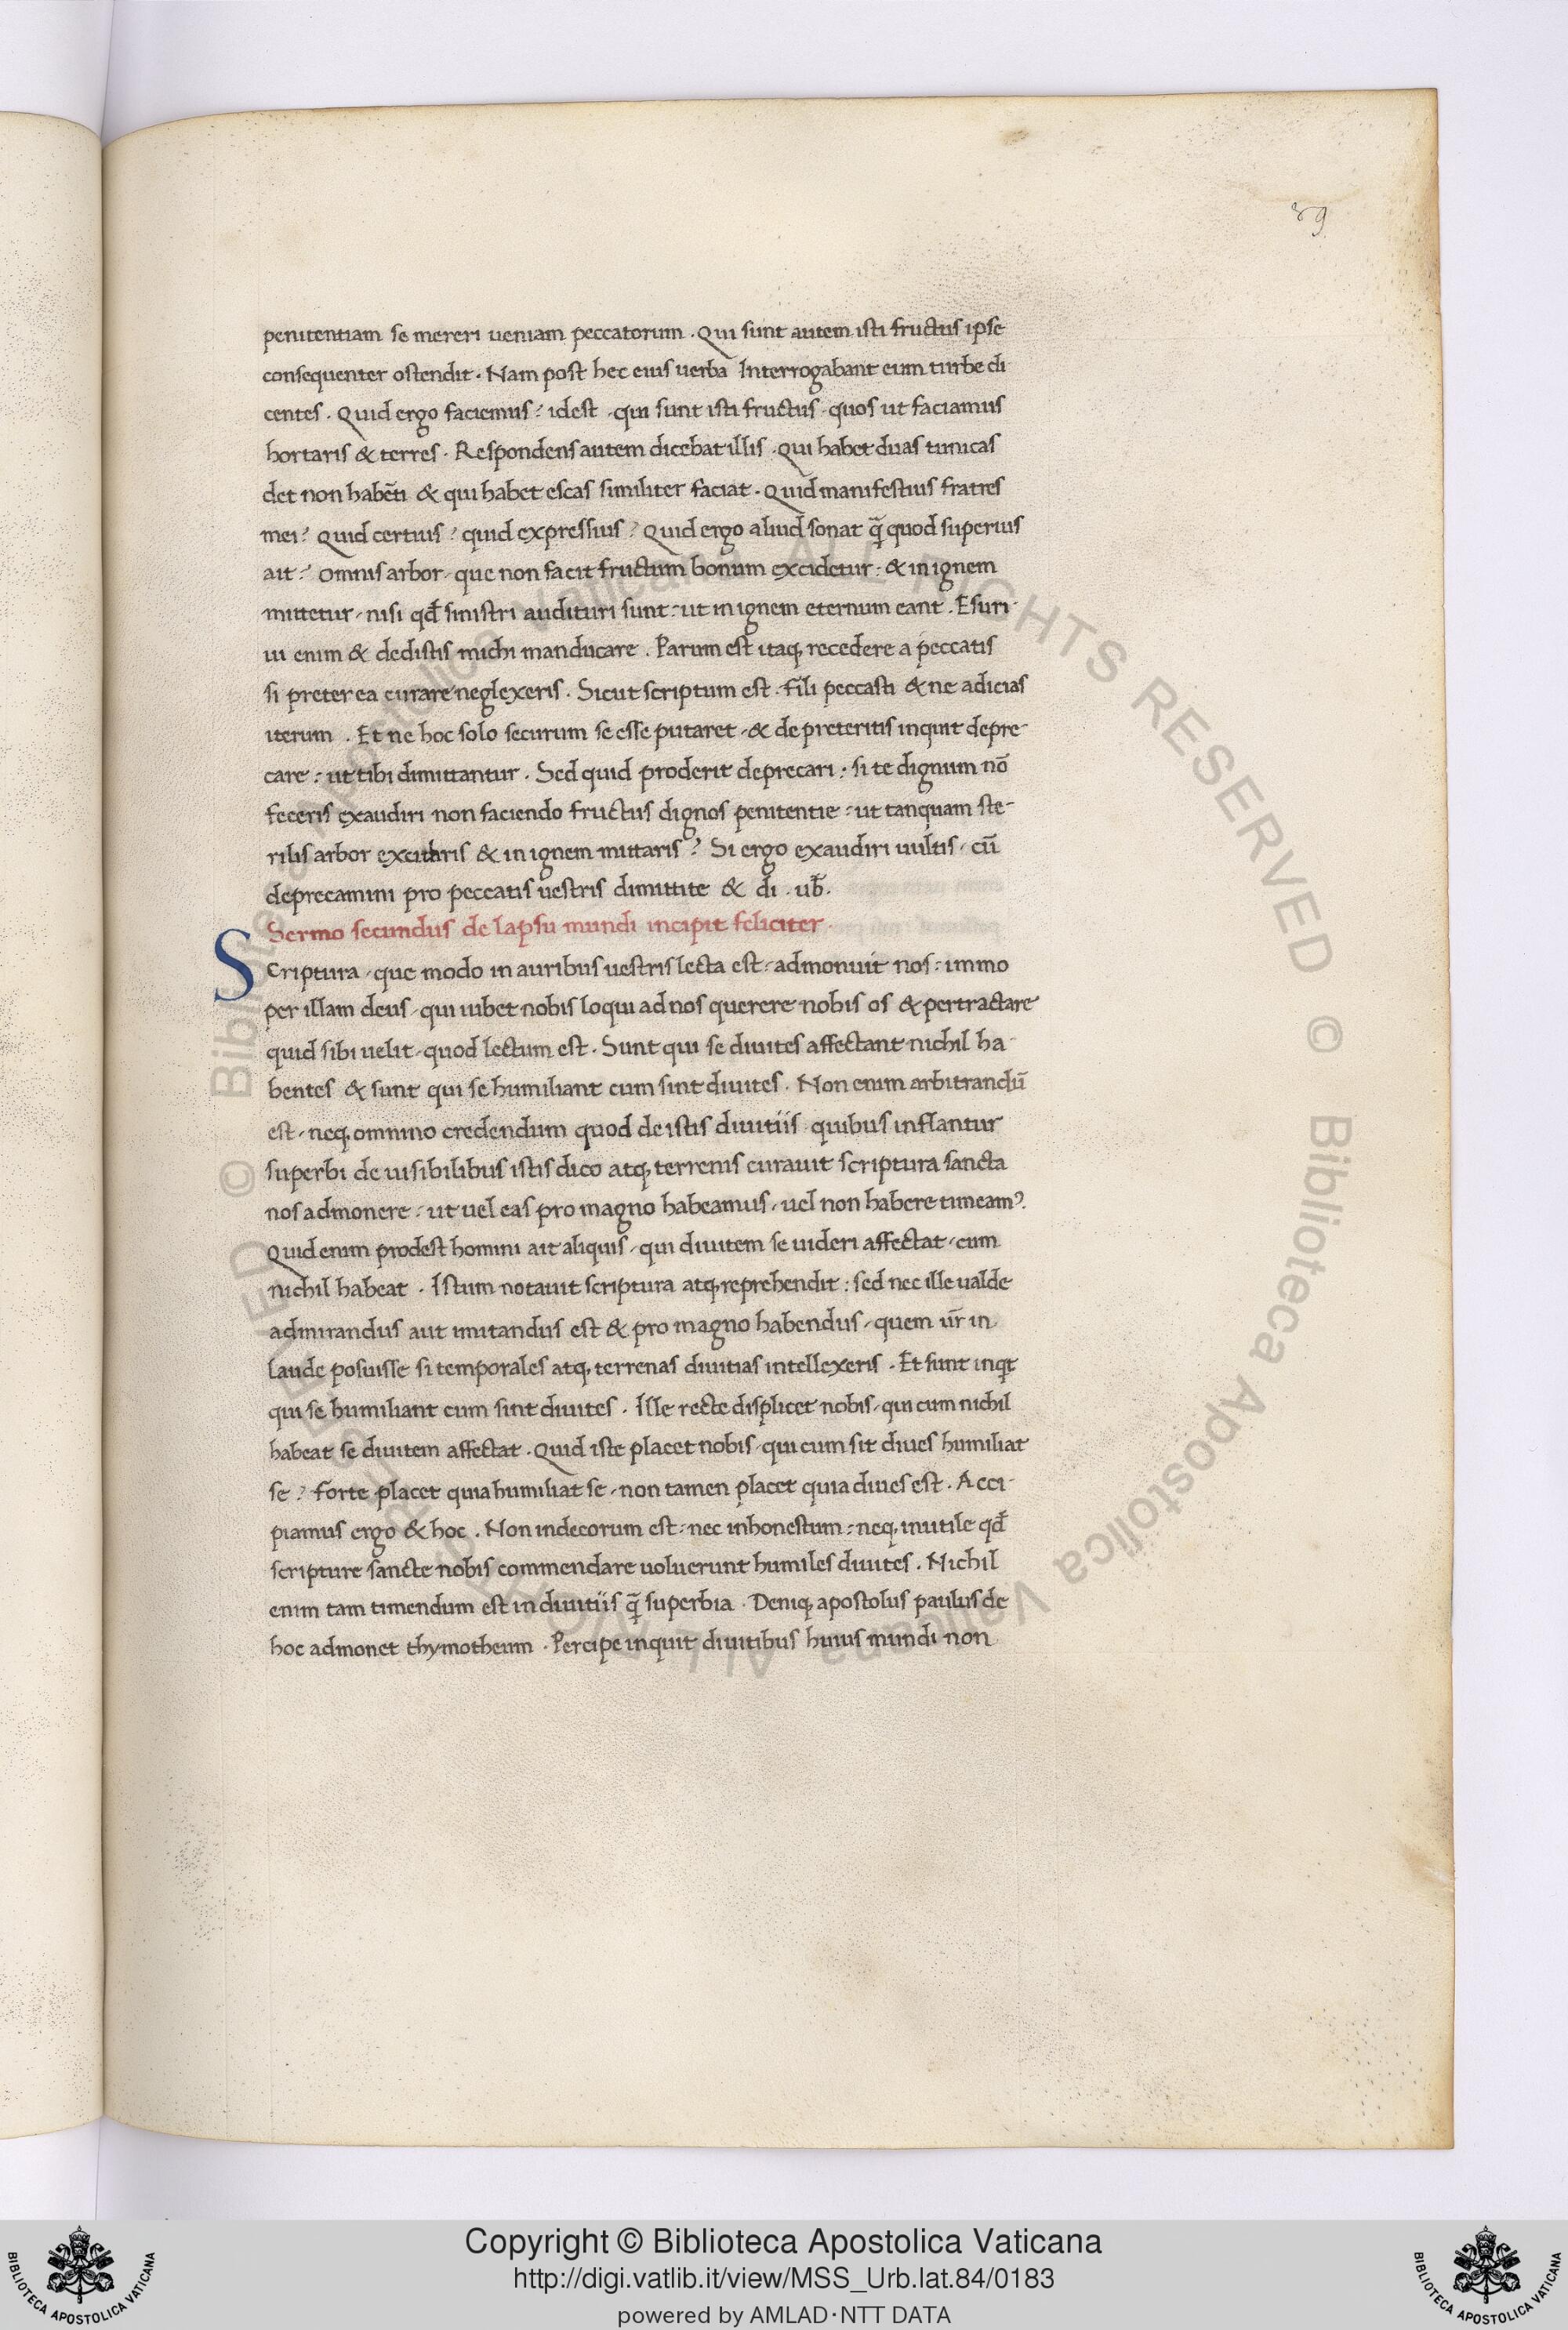 39
penitentiam se mereri ueniam peccatorum . Qui sunt autem isti fructus ipse
consequenter ostendit . Nam post hec eius uerba Interrogabant eum turbe di
centes . Quid ergo faciemus ? idest . qui sunt isti fructus . quos ut faciamus
hortaris & terres . Respondens autem dicebat illis . Qui habet duas tunicas
det non habēti & qui habet escas similiter faciat . Quid manifestius fratres
mei ? Quid certius ? quid expressius ? Quid ergo aliud sonat q̄ quod superius
ait ? Omnis arbor . que non facit fructum bonum excidetur : & in ignem
mittetur . nisi qđ sinistri audituri sunt : ut in ignem eternum eant . Esuri-
ui enim & dedistis michi manducare . Parum est itaq; recedere a peccatis
si preterea curare neglexeris . Sicut scriptum est . Fili peccasti & ne adicias
iterum . Et ne hoc solo securum se esse putaret . & de preteritis inquit depre-
care : ut tibi dimittantur . Sed quid proderit deprecari : si te dignum nō
feceris exaudiri non faciendo fructus dignos penitentie : ut tanquam ste-
rilis arbor excidaris & in ignem mittaris ? Si ergo exaudiri uultis . cū
deprecamini pro peccatis uestris dimittite & di . ub̄ .
Sermo secundus de lapsu mundi incipit feliciter .
Scriptura . que modo in auribus uestris lecta est : admonuit nos : immo
per illam deus . qui iubet nobis loqui ad nos querere nobis os & pertractare
quid sibi uelit . quod lectum est . Sunt qui se diuites affectant nichil ha-
bentes & sunt qui se humiliant cum sint diuites . Non enim arbitrandū
est . neq; omnino credendum quod de istis diuitiis quibus inflantur
superbi de uisibilibus istis dico atq; terrenis curauit scriptura sancta
nos admonere : ut uel eas pro magno habeamus . uel non habere timeamꝰ .
Quid enim prodest homini ait aliquis . qui diuitem se uideri affectat . cum
nichil habeat . Istum notauit scriptura atq; reprehendit : sed nec ille ualde
admirandus aut imitandus est & pro magno habendus . quem ur̄ in
laude posuisse si temporales atq; terrenas diuitias intellexeris . Et sunt inqt
qui se humiliant cum sint diuites . Ille recte displicet nobis . qui cum nichil
habeat se diuitem affectat . Quid iste placet nobis . qui cum sit diues humiliat
se ? Forte placet quia humiliat se . non tamen placet quia diues est . Acci-
piamus ergo & hoc . Non indecorum est : nec inhonestum : neq; inutile qđ
scripture sancte nobis commendare uoluerunt humiles diuites . Nichil
enim tam timendum est in diuitiis q̄ superbia . Deniq; apostolus paulus de
hoc admonet thymotheum . Percipe inquit diuitibus huius mundi non
© Biblioteca Apostolica Vaticana ALL RIGHTS RESERVED © Biblioteca Apostolica Vaticana ALL RIGHTS RESERVED
Copyright © Biblioteca Apostolica Vaticana
http://digi.vatlib.it/view/MSS_Urb.lat.84/0183
powered by AMLAD·NTT DATA
BIBLIOTECA APOSTOLICA VATICANA
BIBLIOTECA APOSTOLICA VATICANA